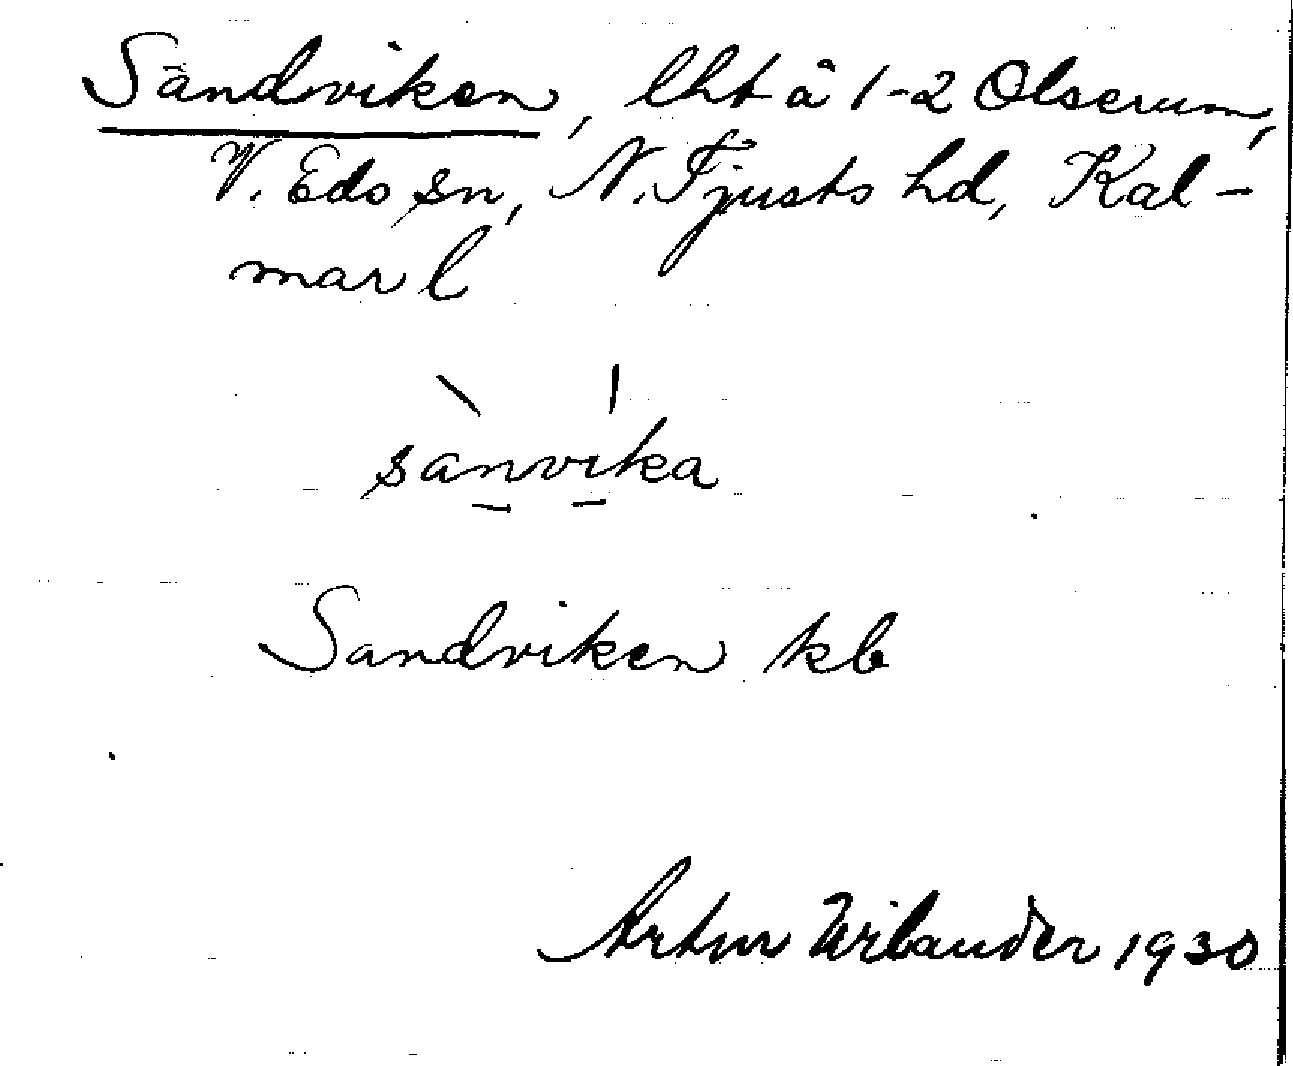 Sandviken, lht å 1-2 Olserum,
V. Eds sn, N. Tjusts hd, Kal-
mar l
sanvika
Sandviken kb
Artur Wilander 1930